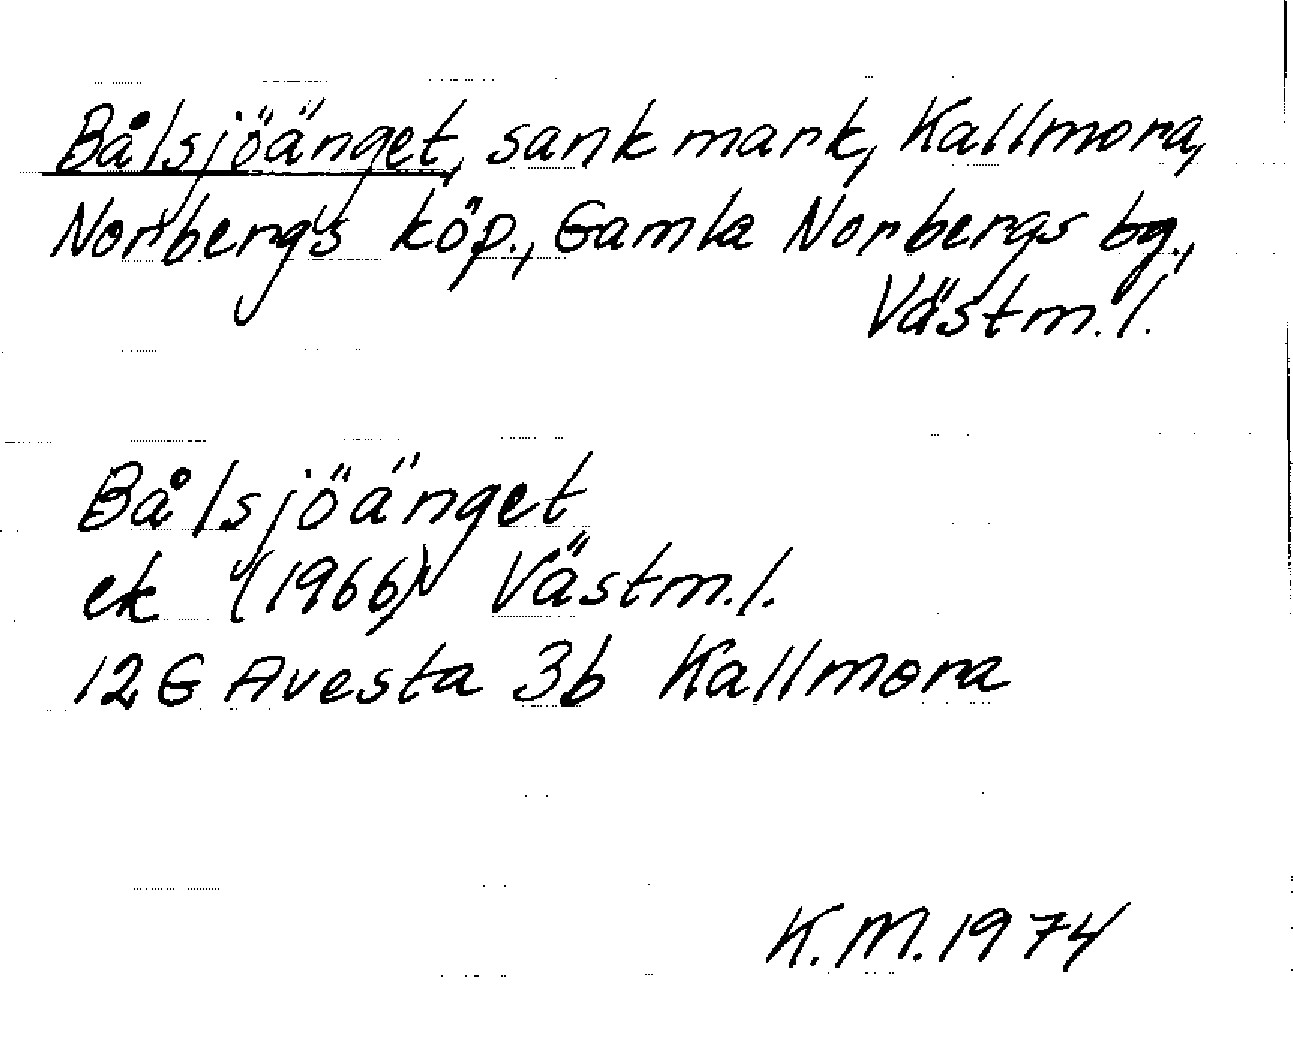 Bålsjöänget, sank mark, Kallmora,
Norbergs köp., Gamla Norbergs bg.,
Västm.l.
Bålsjöänget
ek (1966) Västm.l.
12G Avesta 3b Kallmora
K.M. 1974